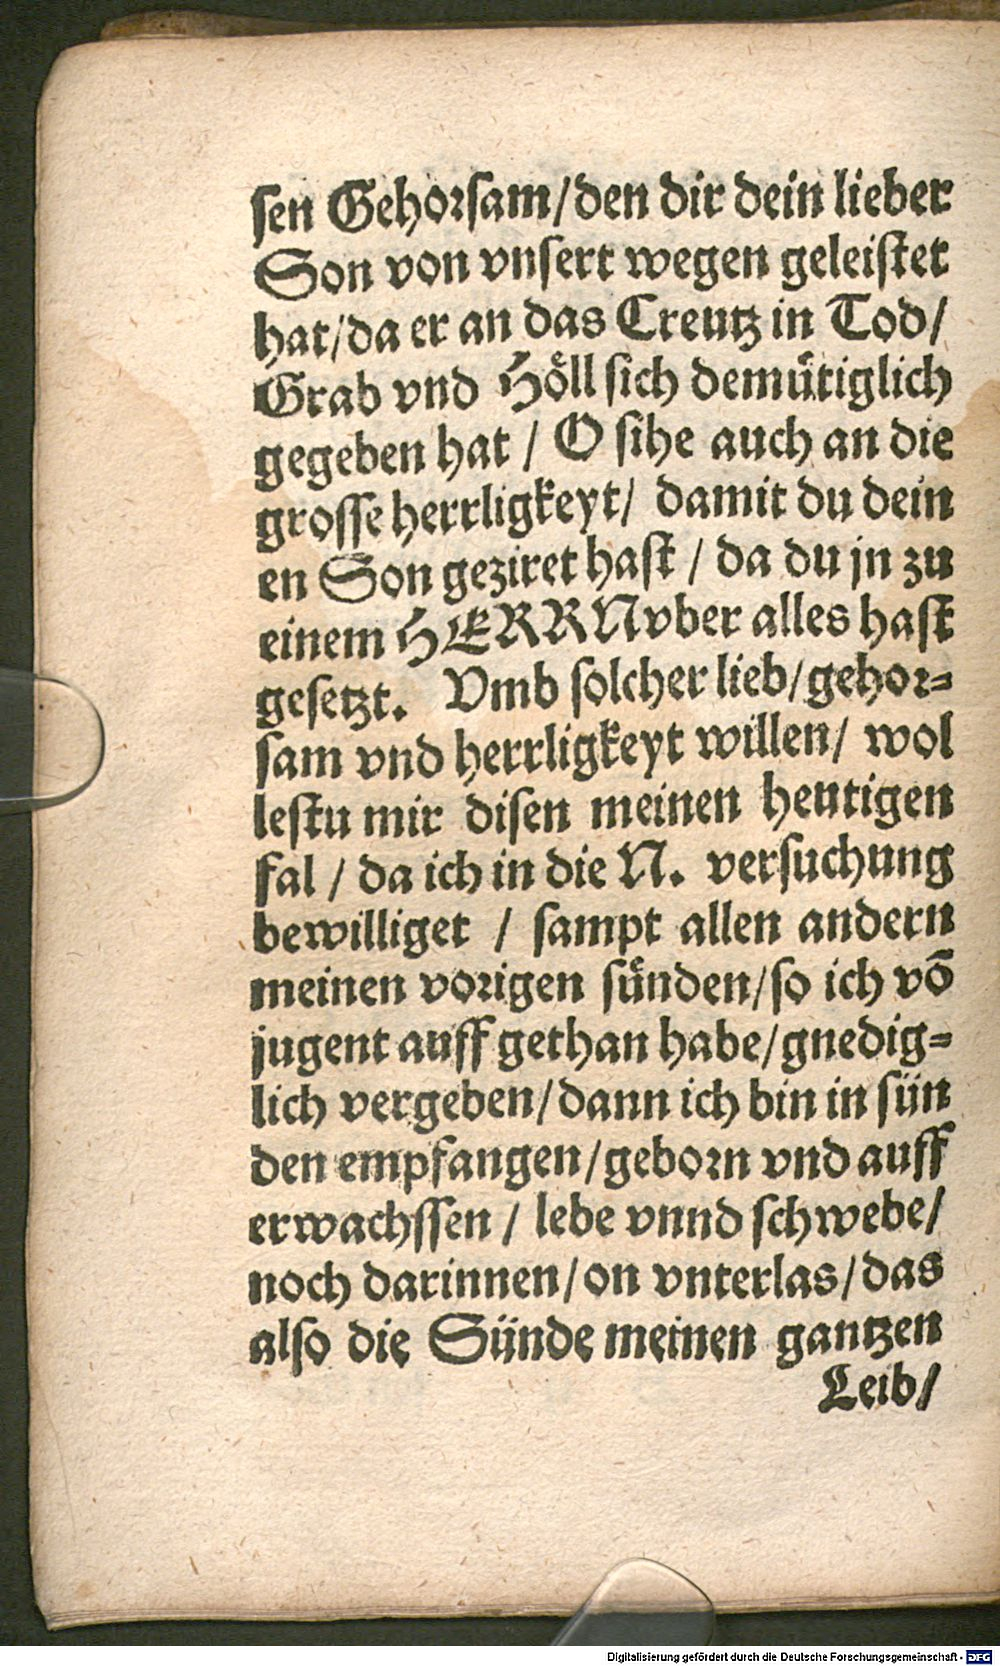 sen Gehorsam/den dir dein lieber
Son von vnsert wegen geleistet
hat/da er an das Creutz in Tod/
Grab vnd Höll sich demütiglich
gegeben hat / O sihe auch an die
grosse herrligkeyt/ damit du dein
en Son geziret hast / da du jn zu
einem HERRN vber alles hast
gesetzt. Vmb solcher lieb/gehor-
sam vnd herrligkeyt willen/ wol
lestu mir disen meinen heutigen
fal / da ich in die N. versuchung
bewilliget / sampt allen andern
meinen vorigen sünden/so ich võ
jugent auff gethan habe/gnedig-
lich vergeben/dann ich bin in sün
den empfangen/geborn vnd auff
erwachssen / lebe vnnd schwebe/
noch darinnen/on vnterlas/das
also die Sünde meinen gantzen
Leib/
Digitalisierung gefördert durch die Deutsche Forschungsgemeinschaft - DFG